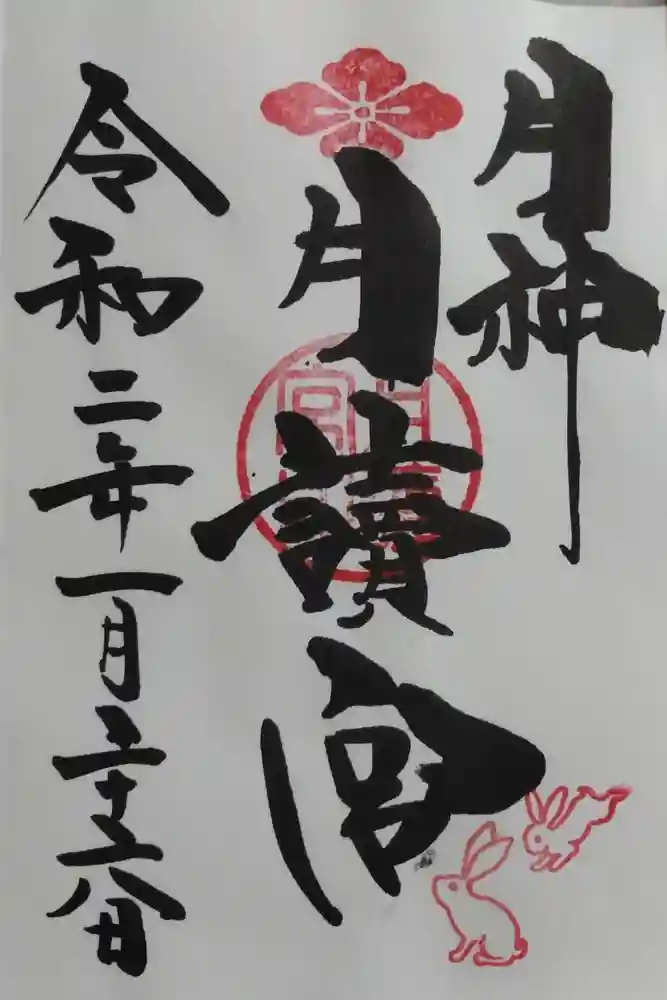 月神
月讀宮
令和二年一月二十六日